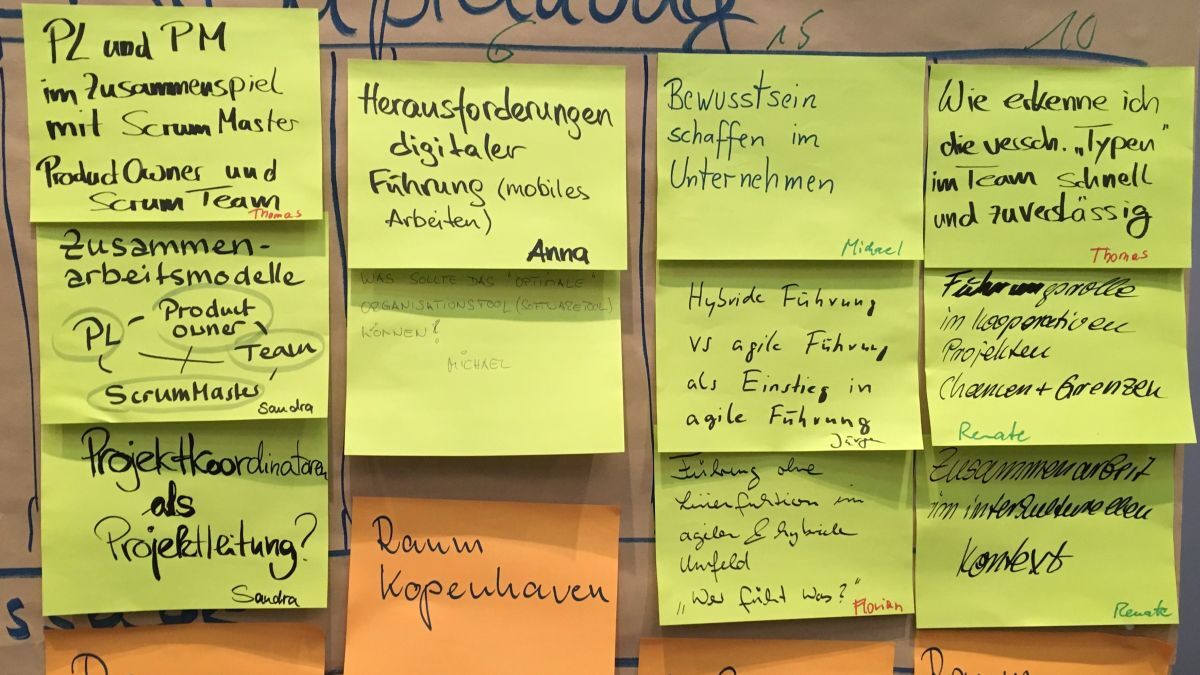 6
15
10
PL und PM
im Zusammenspiel
mit ScrumMaster
ProductOwner und
Scrum Team
Thomas
Zusammen-
arbeitsmodelle
PL
Product
owner
Team
ScrumMaster
Sandra
Projektkoordinatoren
als
Projektleitung?
Sandra
Herausforderungen
digitaler
Führung (mobiles
Arbeiten)
Anna
WAS SOLLTE DAS "OPTIMALE"
ORGANISATIONSTOOL (SOFTWARETOOL)
KÖNNEN?
MICHAEL
Raum
Kopenhaven
Bewusstsein
schaffen im
Unternehmen
Michael
Hybride Führung
vs agile Führung
als Einstieg in
agile Führung
Jürgen
Führung ohne
Linienfuktion im
agilen & hybride
Umfeld
„Wer führt was?"
Florian
Wie erkenne ich
die versch. „Typen"
im Team schnell
und zuverlässig
Thomas
Führungsrolle
im kooperativen
Projekten
Chancen + Grenzen
Renate
Zusammenarbeit
im interkulturellen
Kontext
Renate